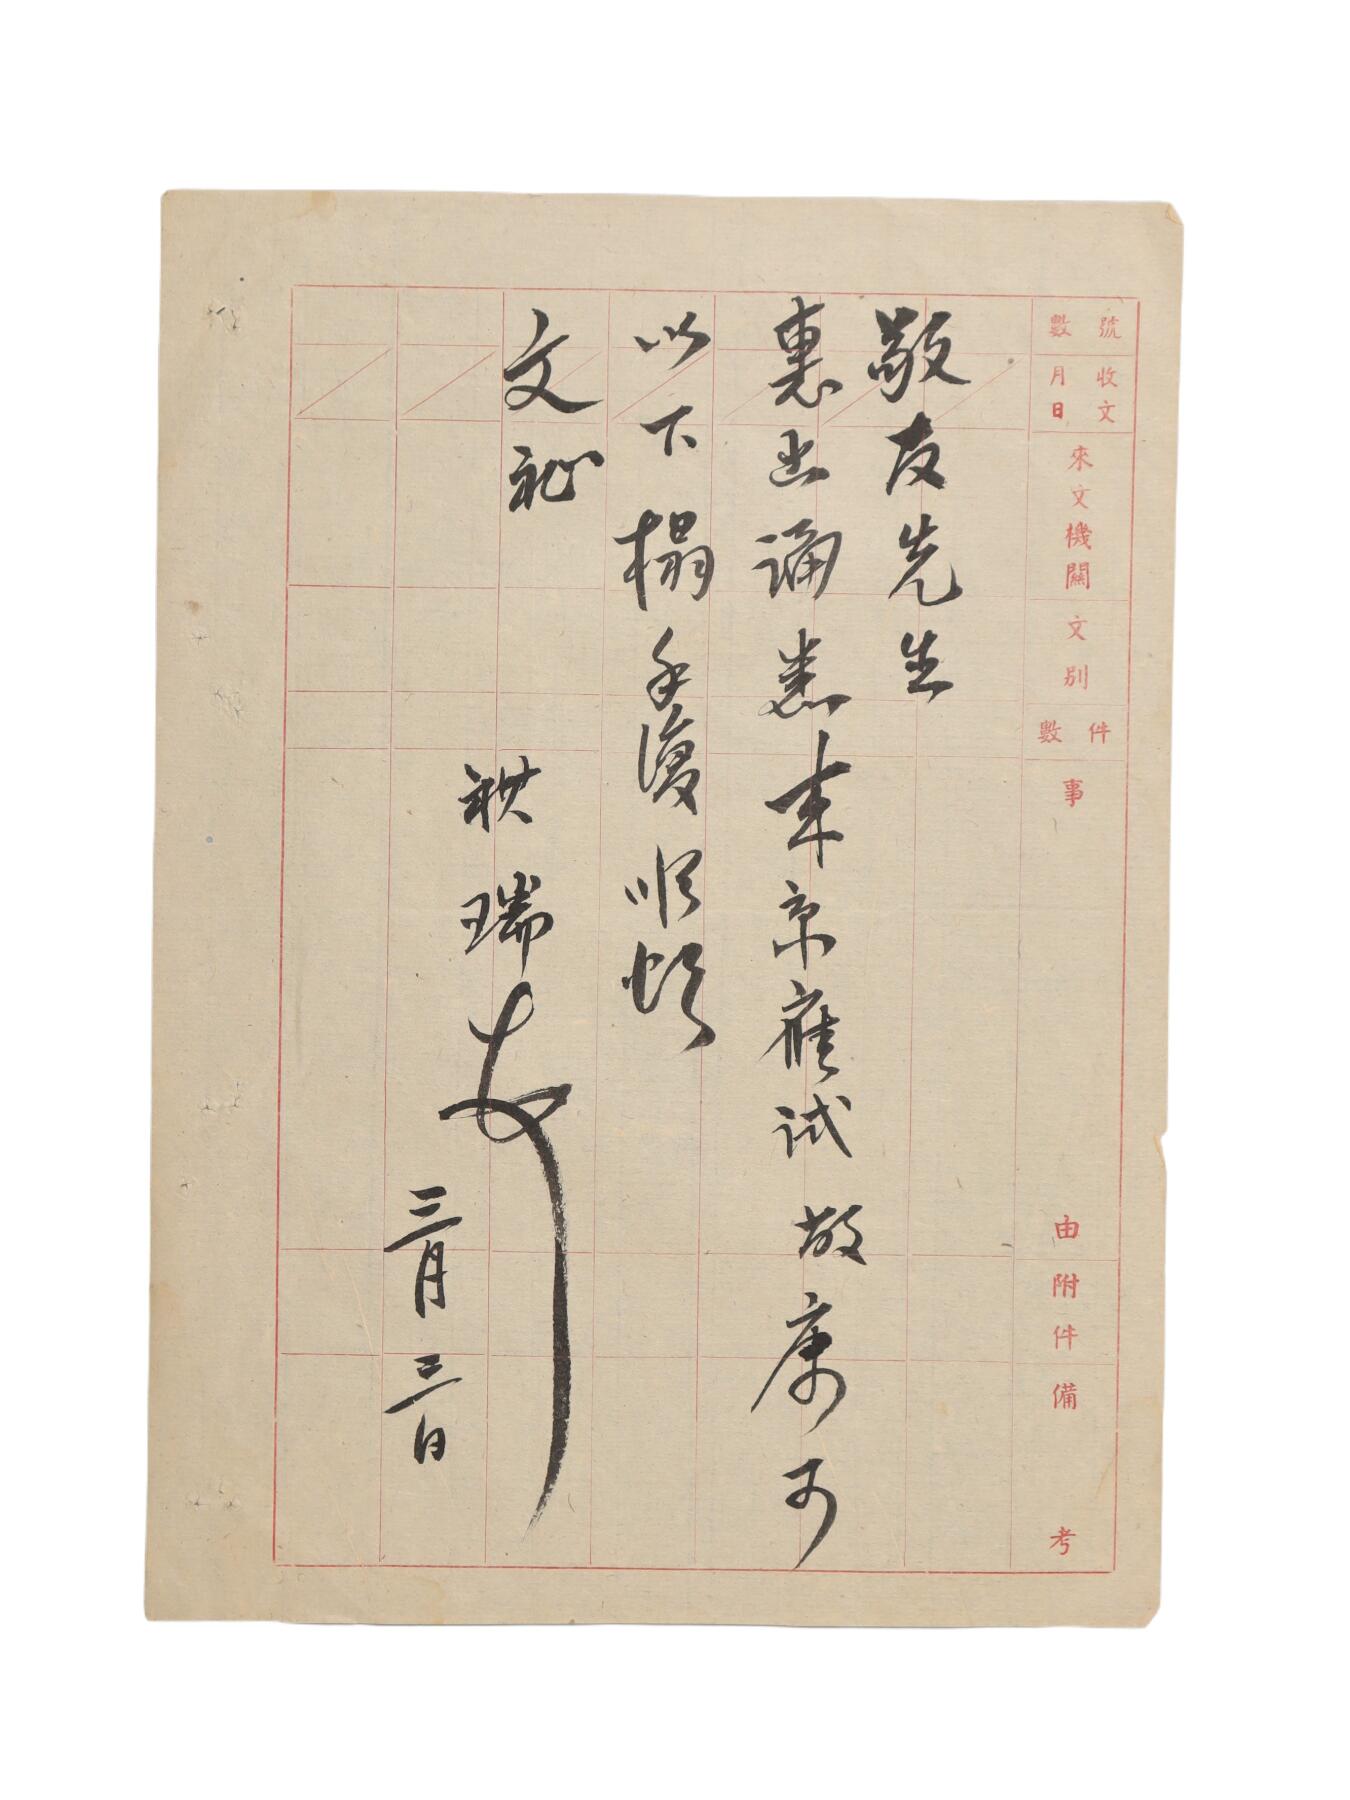 號數
收文月日
來文機關
文別
件數
事由
附件
備考
敬友先生
惠書誦悉來京應試敝寓可
以下榻手復順頌
文祉
瑞
三月三日